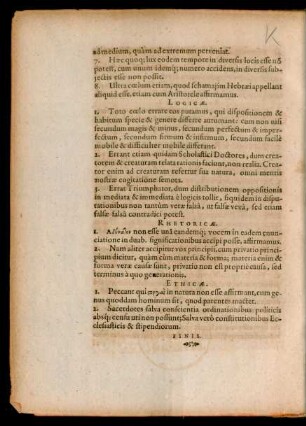 K
ad medium, quàm ad extremum perveniat.
7. Hæc quoq; lux eodem tempore in diversis locis esse nō
potest, cum unum idemq; numero accidens, in diversis sub-
jectis esse non possit.
8. Ultra cœlum etiam, quod schamajim Hebræi appellant
aliquid esse, etiam cum Aristotele affirmamus.
LOGICÆ.
1. Toto cœlo errare eos putamus, qui dispositionem &
habitum specie & genere differre autumant: cum non nisi
secundum magis & minus, secundum perfectum & imper-
fectum, secundum firmum & infirmum, secundum facilè
mobile & difficulter mobile differant.
2. Errant etiam quidam Scholastici Doctores, dum crea-
torem & creaturam relata rationis faciunt, non realia. Cre-
ator enim ad creaturam refertur sua natura, omni mentis
nostræ cogitatione semota.
3. Errat Triumphator, dum distributionem oppositionis
in mediata & immediata è logicis tollit, siquidem in dispu-
tationibus non tantùm vera falsis, ut falsa veris, sed etiam
falsa falsis contradici potest.
RHETORICÆ.
1. non esse unā eandemq; vocem in eadem enun-
ciatione in duab. significationibus accipi posse, affirmamus.
2. Num aliter accipitur vox principii, cum privatio princi-
pium dicitur, quàm cùm materia & forma; materia enim &
forma veræ causæ sunt, privatio non est propriè causa, sed
terminus à quo generationis.
ETHICÆ.
1. Peccare qui in natura non esse affirmant, cum ge-
nus quoddam hominum sit, quod parentes mactet.
2. Sacerdotes salva conscientia ordinationibus politicis
absq; censu uti non possunt; Salva verò constitutionibus Ec-
clesiasticis & stipendiorum.
FINIS.